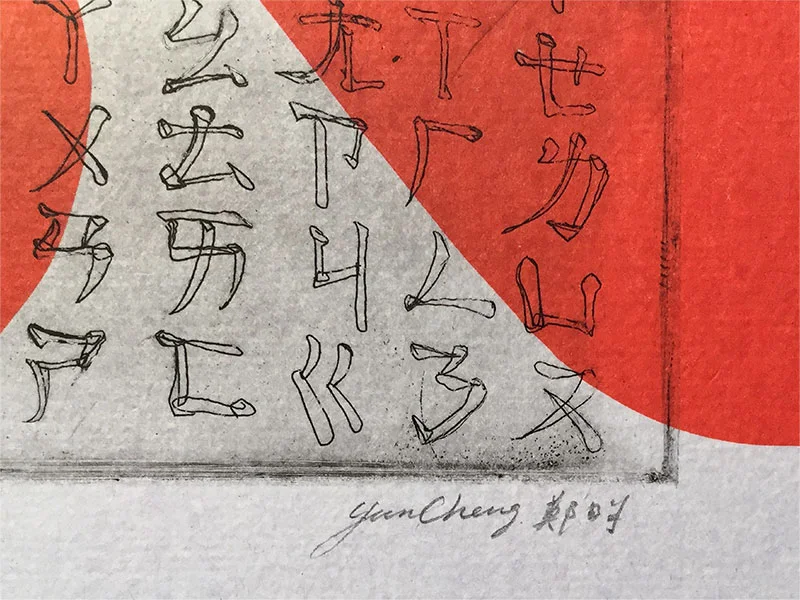 ㄚ ㄠ ㄤ ㄒ ㄝ
ㄨ ㄊ ㄗ ㄏ ㄌ
ㄢ ㄞ ㄐ ㄥ ㄩ
ㄕ ㄈ ㄍ ㄋ ㄡ
yunCheng 鄭